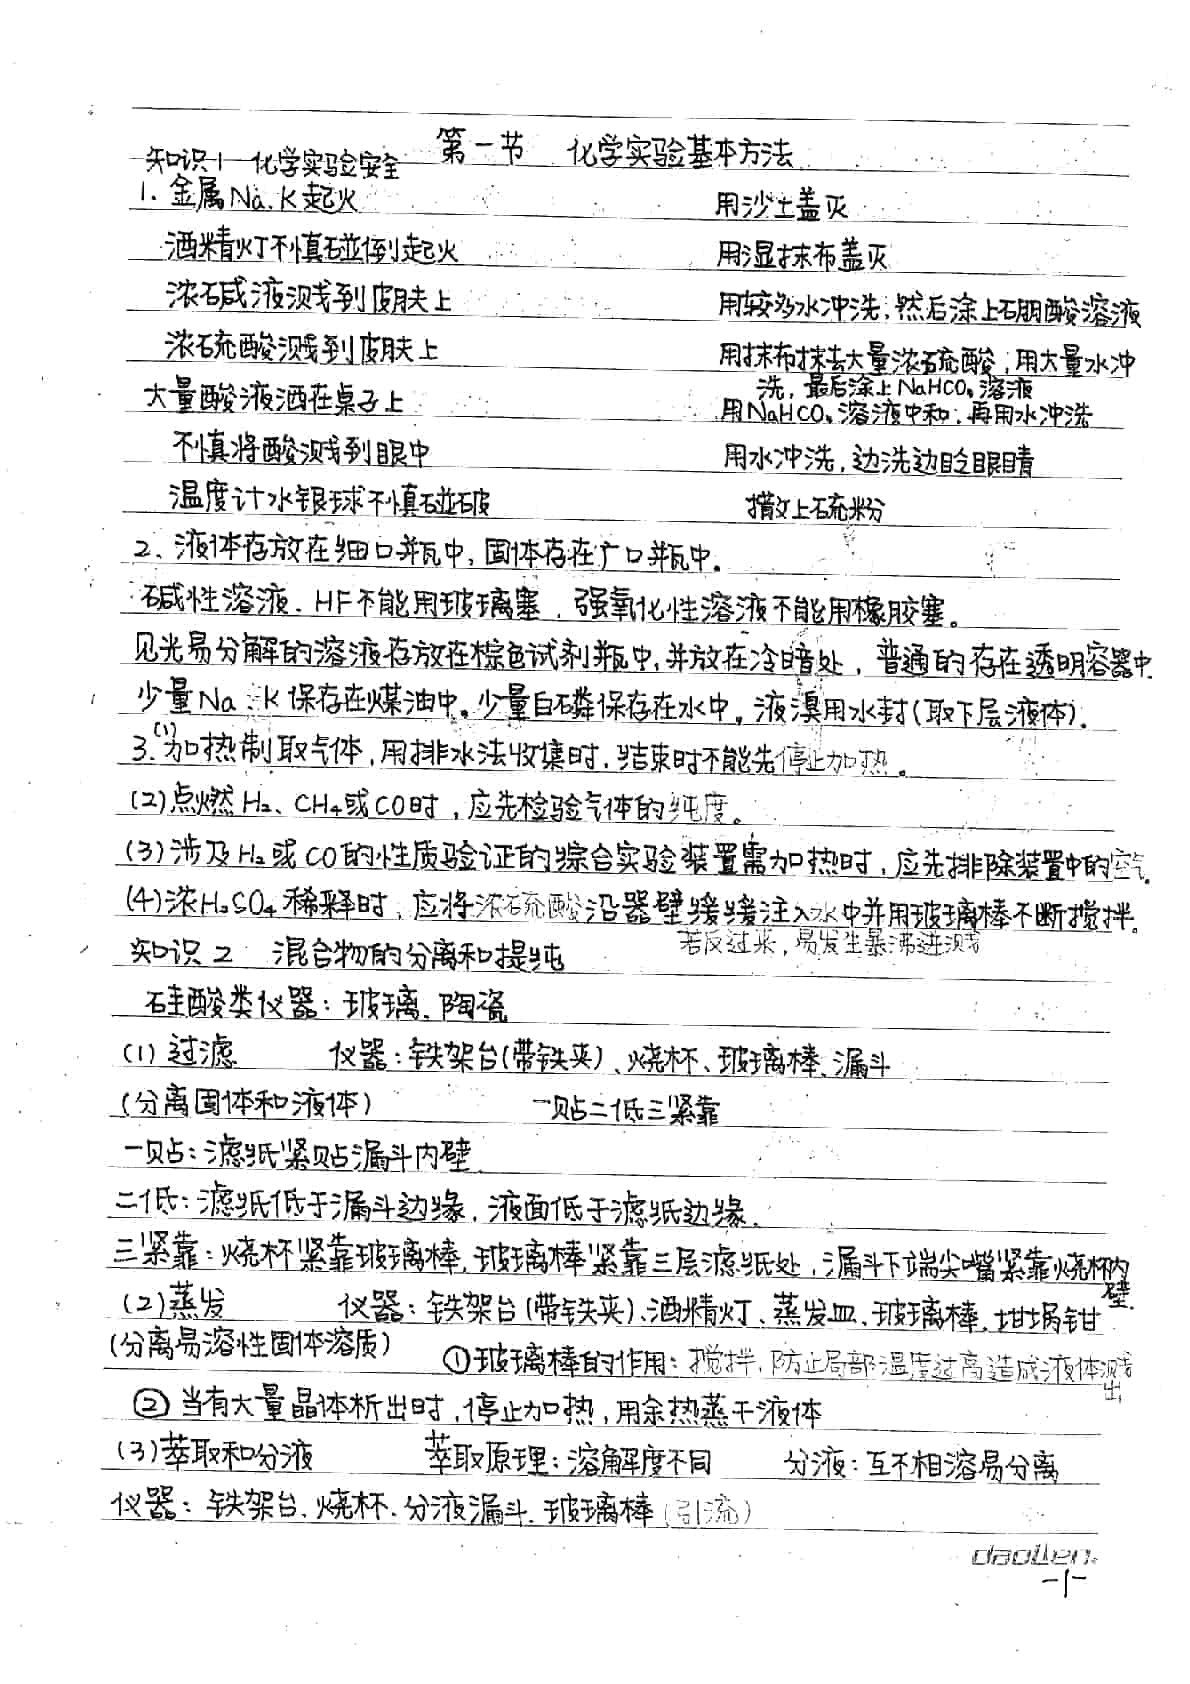 第一节 化学实验基本方法
知识1 化学实验安全
1. 金属Na.K起火 用沙土盖灭
酒精灯不慎碰倒起火 用湿抹布盖灭
浓碱液溅到皮肤上 用较多水冲洗；然后涂上硼酸溶液
浓硫酸溅到皮肤上 用抹布抹去大量浓硫酸；用大量水冲
洗，最后涂上NaHCO₃溶液
大量酸液洒在桌子上 用NaHCO₃溶液中和；再用水冲洗
不慎将酸溅到眼中 用水冲洗，边洗边眨眼睛
温度计水银球不慎碰破 撒上硫粉
2、液体存放在细口瓶中，固体存在广口瓶中。
碱性溶液、HF不能用玻璃塞，强氧化性溶液不能用橡胶塞。
见光易分解的溶液存放在棕色试剂瓶中，并放在冷暗处，普通的存在透明容器中.
少量Na、K保存在煤油中。少量白磷保存在水中。液溴用水封(取下层液体).
3.(1)加热制取气体，用排水法收集时，结束时不能先停止加热。
(2)点燃H₂、CH₄或CO时，应先检验气体的纯度。
(3)涉及H₂或CO的性质验证的综合实验装置需加热时，应先排除装置中的空气.
(4)浓H₂SO₄稀释时，应将浓硫酸沿器壁缓缓注入水中并用玻璃棒不断搅拌。
若反过来，易发生暴沸迸溅
知识2 混合物的分离和提纯
硅酸类仪器：玻璃、陶瓷
(1)过滤 仪器：铁架台(带铁夹)、烧杯、玻璃棒、漏斗
(分离固体和液体) 一贴二低三紧靠
一贴：滤纸紧贴漏斗内壁.
二低：滤纸低于漏斗边缘，液面低于滤纸边缘.
三紧靠：烧杯紧靠玻璃棒，玻璃棒紧靠三层滤纸处，漏斗下端尖嘴紧靠烧杯内
壁.
(2)蒸发 仪器：铁架台(带铁夹)、酒精灯、蒸发皿、玻璃棒、坩埚钳
(分离易溶性固体溶质) ①玻璃棒的作用：搅拌，防止局部温度过高造成液体溅
出
②当有大量晶体析出时，停止加热，用余热蒸干液体
(3)萃取和分液 萃取原理：溶解度不同 分液：互不相溶易分离
仪器：铁架台、烧杯、分液漏斗、玻璃棒(引流)
daolien
-1-